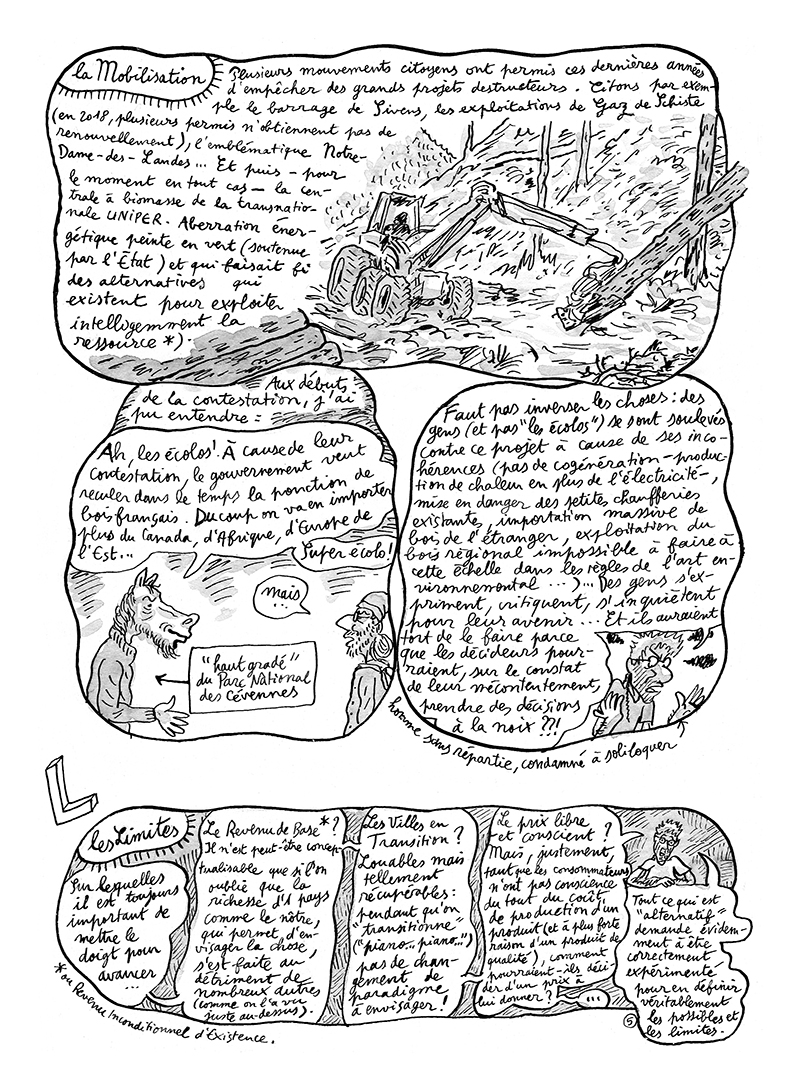 la Mobilisation
Plusieurs mouvements citoyens ont permis ces dernières années
d'empêcher des grands projets destructeurs. Citons par exem-
ple le barrage de Sivens, les exploitations de Gaz de Schiste
(en 2018, plusieurs permis n'obtiennent pas de
renouvellement), l'emblématique Notre-
Dame-des-Landes... Et puis - pour
le moment en tout cas - la cen-
trale à biomasse de la transnatio-
nale UNIPER. Aberration éner-
gétique peinte en vert (soutenue
par l'État) et qui faisait fi
des alternatives qui
existent pour exploiter
intelligemment la
ressource *).
Aux débuts
de la contestation, j'ai
pu entendre :
Ah, les écolos ! À cause de leur
contestation, le gouvernement veut
reculer dans le temps la ponction de
bois français. Du coup on va en importer
plus du Canada, d'Afrique, d'Europe de
l'Est...
Super écolo !
mais...
"haut gradé"
du Parc National
des Cévennes
Faut pas inverser les choses : des
gens (et pas "les écolos") se sont soulevés
contre ce projet à cause de ses inco-
hérences (pas de cogénération - produc-
tion de chaleur en plus de l'électricité -,
mise en danger des petites chaufferies
existantes, importation massive de
bois de l'étranger, exploitation du
bois régional impossible à faire à
cette échelle dans les règles de l'art en-
vironnemental ...)... Des gens s'ex-
priment, critiquent, s'inquiètent
pour leur avenir... Et ils auraient
tort de le faire parce
que les décideurs pour-
raient, sur le constat
de leur mécontentement,
prendre des décisions
à la noix ??!
homme sans répartie, condamné à soliloquer
L
les Limites
Sur lesquelles
il est toujours
important de
mettre le
doigt pour
avancer...
Le Revenu de Base* ?
Il n'est peut-être concep-
tualisable que si l'on
oublie que la
richesse d'1 pays
comme le nôtre,
qui permet d'en-
visager la chose,
s'est faite au
détriment de
nombreux autres
(comme on l'a vu
juste au-dessus).
*ou Revenu Inconditionnel d'Existence.
Les Villes en
Transition ?
Louables mais
tellement
récupérables :
pendant qu'on
"transitionne"
("piano... piano...")
pas de chan-
gement de
paradigme
à envisager !
Le prix libre
et conscient ?
Mais, justement,
tant que les consommateurs
n'ont pas conscience
du tout du coût
de production d'un
produit (et à plus forte
raison d'un produit de
qualité), comment
pourraient-ils déci-
der d'un prix à
lui donner ?
...
Tout ce qui est
"alternatif"
demande évidem-
ment à être
correctement
expérimenté
pour en définir
véritablement
les possibles et
les limites.
5